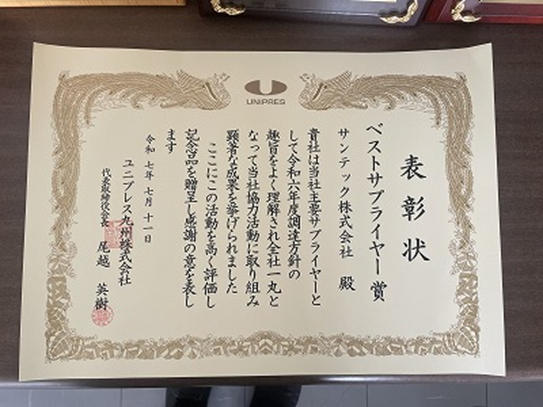 UNIPRES
表彰状
ベストサプライヤー賞
サンテック株式会社 殿
貴社は当社主要サプライヤーと
して令和六年度調達方針の
趣旨をよく理解され全社一丸と
なって当社協力活動に取り組み
顕著な成果を挙げられました
ここにこの活動を高く評価し
記念品を贈呈し感謝の意を表し
ます
令和七年七月十一日
ユニプレス九州株式会社
代表取締役会長 尾越 英樹